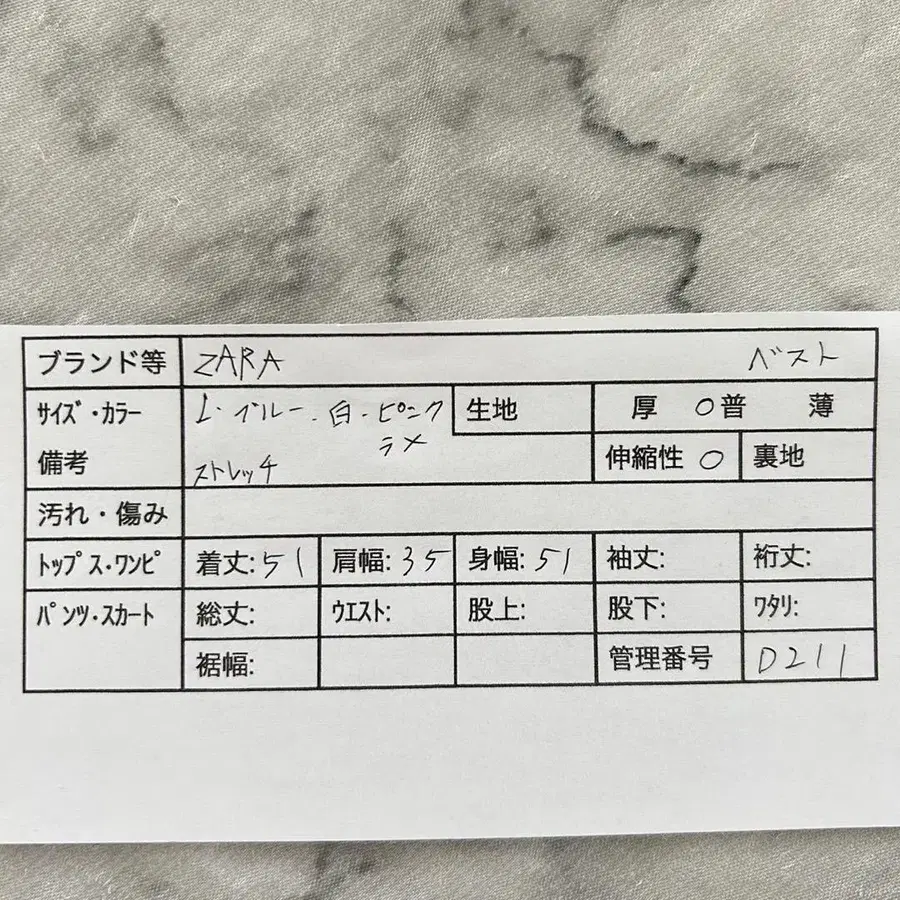 ブランド等 ZARA ベスト
サイズ・カラー L・ブルー・白・ピンク 生地 厚 〇普 薄
ラメ
備考 ストレッチ 伸縮性 〇 裏地
汚れ・傷み
トップス・ワンピ 着丈:51 肩幅:35 身幅:51 袖丈: 裄丈:
パンツ・スカート 総丈: ウエスト: 股上: 股下: ワタリ:
裾幅: 管理番号 D211